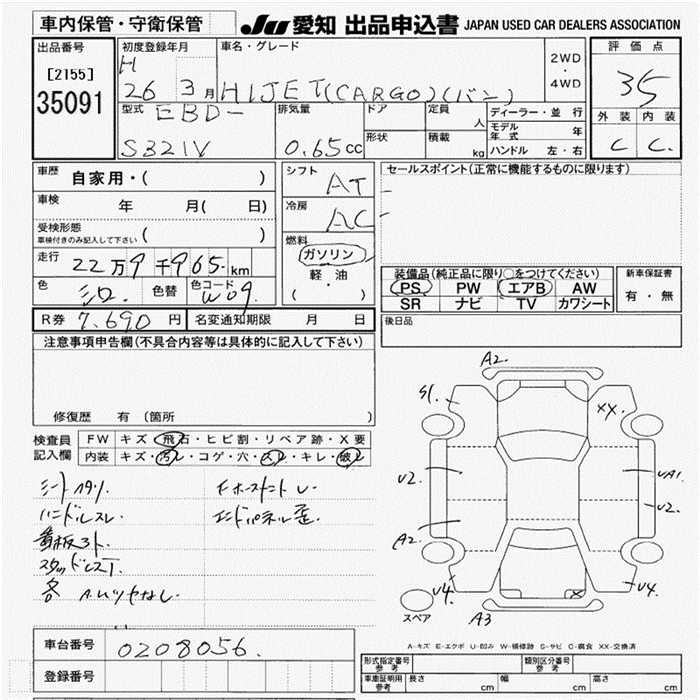 車内保管・守衛保管
JU 愛知 出品申込書 JAPAN USED CAR DEALERS ASSOCIATION
出品番号
[2155]
35091
初度登録年月
H
26 3 月
車名・グレード
HIJET(CARGO)(バン)
2WD
・
4WD
評価点
35
外装 内装
C C
型式 EBD-
S321V
排気量
0.65 cc
ドア
形状
定員
人
積載
kg
ディーラー・並行
モデル年式 年
ハンドル 左・右
車歴 自家用・( )
車検 年 月( 日)
受検形態
車検付きのみ記入して下さい ( )
走行 22万9千965 km
色 シロ 色替 色コード W09
シフト AT
冷房 AC
燃料
ガソリン
軽・油
( )
セールスポイント(正常に機能するものに限ります)
装備品(純正品に限り○をつけてください)
PS PW エアB AW
SR ナビ TV カワシート
新車保証書
有・無
R券 7,690 円 名変通知期限 月 日
後日品
注意事項申告欄(不具合内容等は具体的に記入して下さい)
修復歴 有 (箇所
検査員記入欄
FW キズ・飛石・ヒビ割・リペア跡・X要
内装 キズ・汚レ・コゲ・穴・スレ・キレ・破レ
シートヘタリ
ハンドルスレ
看板跡
スタッドレスT
各 A.Uツヤなし
エンドパネル歪
A2
S1
XX
U2
UA1
U2
A2
U4
U4
X
A3
スペア
A-キズ E-エクボ U-凹み W-補修跡 S-サビ C-腐食 XX-交換済
車台番号 0208056
登録番号
形式指定番号 参考
類別区分番号 参考
車庫証明用 参考 長さ cm 幅 cm 高さ cm